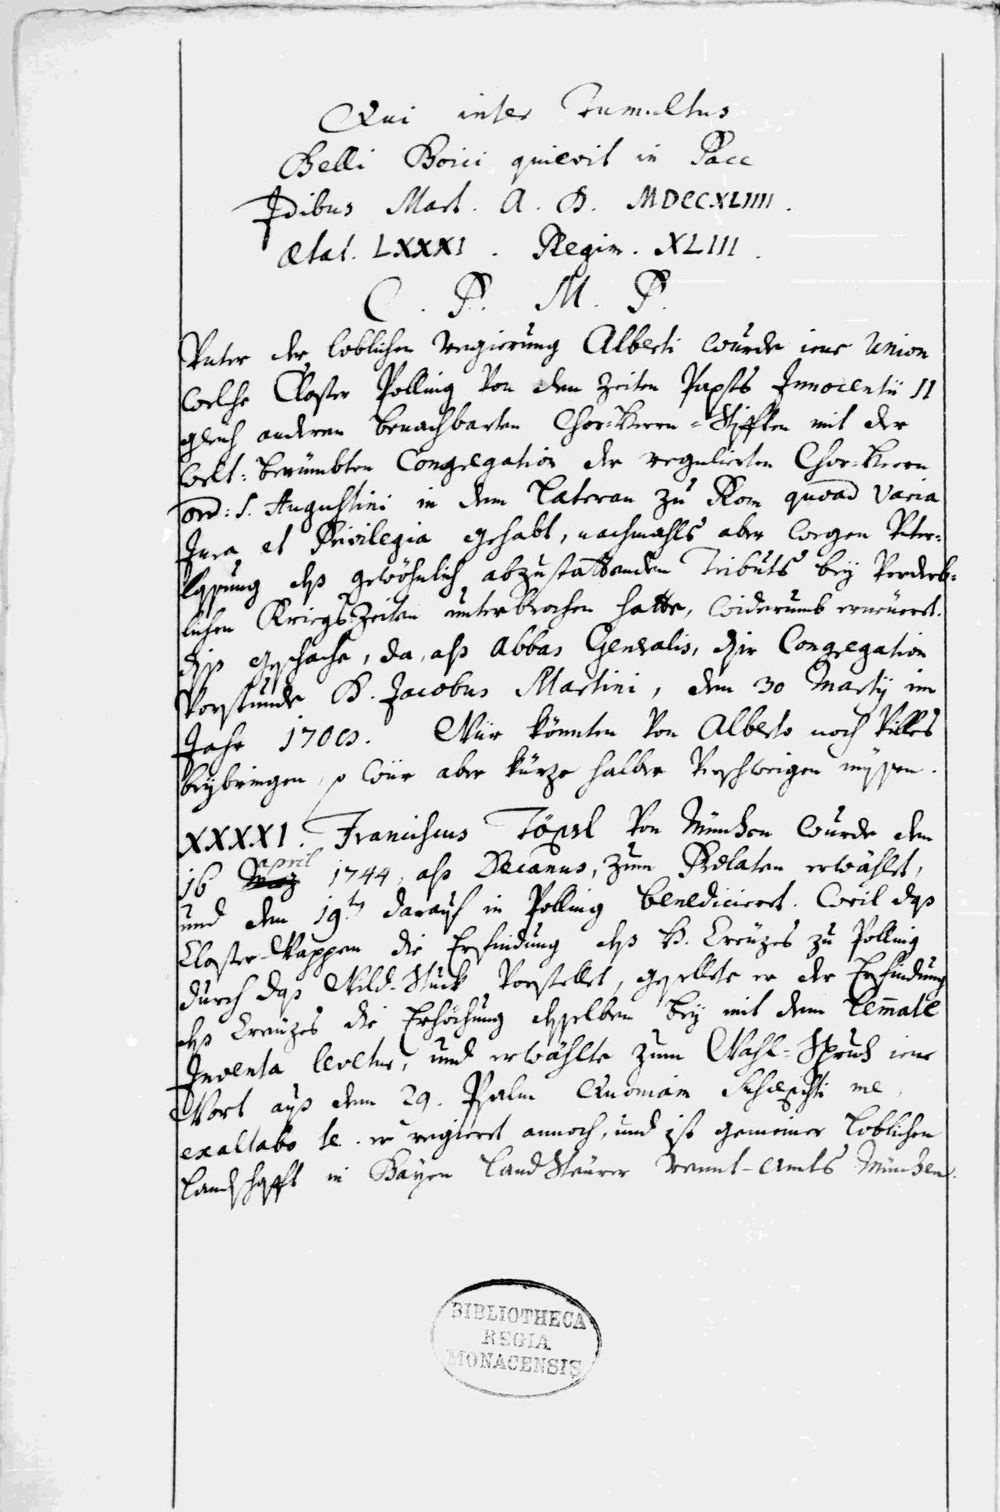 Qui inter Tumultus
Belli Boici quievit in Pace
Idibus Mart. A. D. MDCCXLIIII.
Ætat. LXXXI. Regim. XLIII.
C. P. M. P.
Unter der loblichen regierung Alberti wurde iene Union
welche Closter Polling von den Zeiten Papsts Innocentii II
gleich anderen benachbarten Chor-Herrn-Stifften mit der
welt-berümbten Congregation der regulierten Chor-Herrn
ord: S. Augustini in dem Lateran zu Rom quoad varia
Jura et Privilegia gehabt, nachmahls aber wegen Unter-
lassung deß gewöhnlich abzustattenden Tributs bey verderb-
lichen Kriegs-Zeiten unterbrochen hatte, widerumb erneüeret.
diß geschache, da, alß Abbas Generalis, diser Congregation
vorstunde D. Jacobus Martini, den 30 Martij im
Jahr 170. Wür könnten von Alberto noch villes
beybringen, so wür aber kürze halber verschweigen müssen.
XXXXI. Franciscus Töpsl von München wurde den
16 april 1744, alß Decanus, zum Prælaten erwählt,
und den 19ten darauf in Polling benediciert. Weil das
Closter-Wappen die Erfindung deß H. Creüzes zu Polling
durch das Wild-Stuck vorstellet, gesellete er der Erfindung
deß Creüzes die Erhöchung desselben bey mit dem Lem̄ate
Inventa levetur, und erwählte zum Wahl-Spruch iene
Wort auß dem 29. Psalm Quoniam suscepisti me,
exaltabo te. er regieret annoch, und ist gemeiner Loblichen
Landschafft in Bayrn Land Steürer Rennt-Amts München.
BIBLIOTHECA
REGIA
MONACENSIS